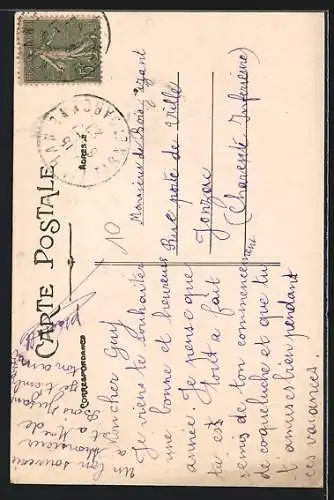 CARTE POSTALE
CORRESPONDANCE
ADRESSE
Monsieur de Bois Jugant
Rue porte de grille
Jonzac
(Charente Inférieure)
10
Mon cher Guy
Je viens te souhaiter
une bonne et heureuse
année. Je pense que
tu es tout a fait
remis de ton commencement
de coqueluche et que tu
t'amuses bien pendant
ces vacances.
un bon souvenir
a Monsieur
et a Mme de
Bois Jugant
ton ami